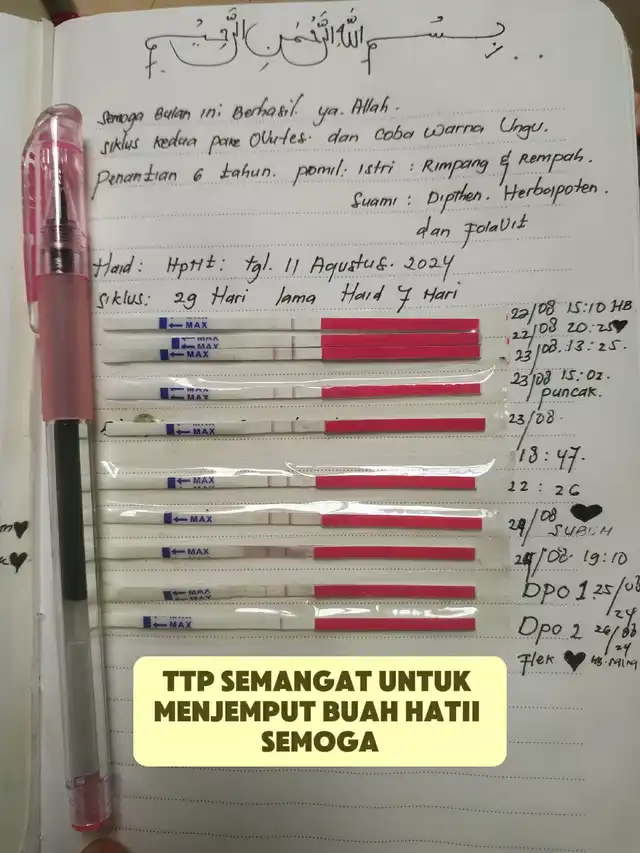 بِسْمِ اللَّهِ الرَّحْمَٰنِ الرَّحِيْمِ
Semoga Bulan ini Berhasil ya. Allah.
siklus kedua pake OVutes. dan coba warna Ungu.
penantian 6 tahun. promil: istri : Rimpang & Rempah.
Suami : Dipthen. Herbolpoten.
dan folavit
Haid: HpHt: tgl. 11 Agustus. 2024
siklus: 29 Hari lama Haid 7 Hari
MAX 22/08 15:10 HB
MAX 22/08 20:25
MAX 23/08.13:25.
MAX 23/08 15:02.
puncak.
MAX 23/08.
18:47.
MAX 22:26
MAX 24/08
SUBUH
MAX 24/08 19:10
MAX Dpo 1 25/08
24
MAX Dpo 2 26/08
24
Flek HB.
TTP SEMANGAT UNTUK
MENJEMPUT BUAH HATII
SEMOGA